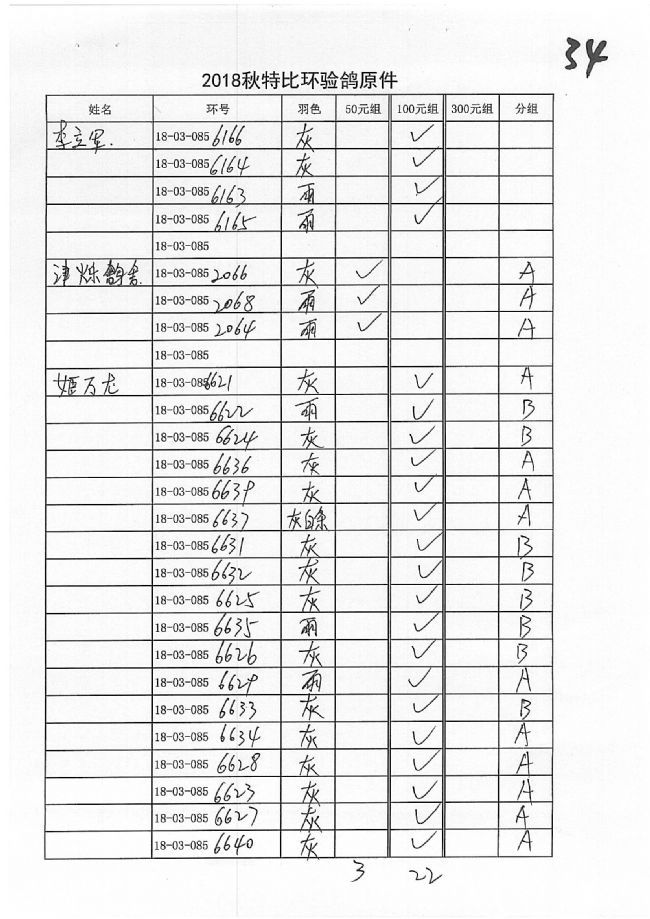 34
2018秋特比环验鸽原件
姓名 环号 羽色 50元组 100元组 300元组 分组
李立军. 18-03-085 6166 灰 ✓
18-03-085 6164 灰 ✓
18-03-085 6163 雨 ✓
18-03-085 6165 雨 ✓
18-03-085
津烁鸽舍 18-03-085 2066 灰 ✓ A
18-03-085 2068 雨 ✓ A
18-03-085 2064 雨 ✓ A
18-03-085
姬万龙 18-03-085 6621 灰 ✓ A
18-03-085 6622 雨 ✓ B
18-03-085 6624 灰 ✓ B
18-03-085 6636 灰 ✓ A
18-03-085 6639 灰 ✓ A
18-03-085 6637 灰白条 ✓ A
18-03-085 6631 灰 ✓ B
18-03-085 6632 灰 ✓ B
18-03-085 6625 灰 ✓ B
18-03-085 6635 雨 ✓ B
18-03-085 6626 灰 ✓ B
18-03-085 6629 雨 ✓ A
18-03-085 6633 灰 ✓ B
18-03-085 6634 灰 ✓ A
18-03-085 6628 灰 ✓ A
18-03-085 6623 灰 ✓ A
18-03-085 6627 灰 ✓ A
18-03-085 6640 灰 ✓ A
3 22